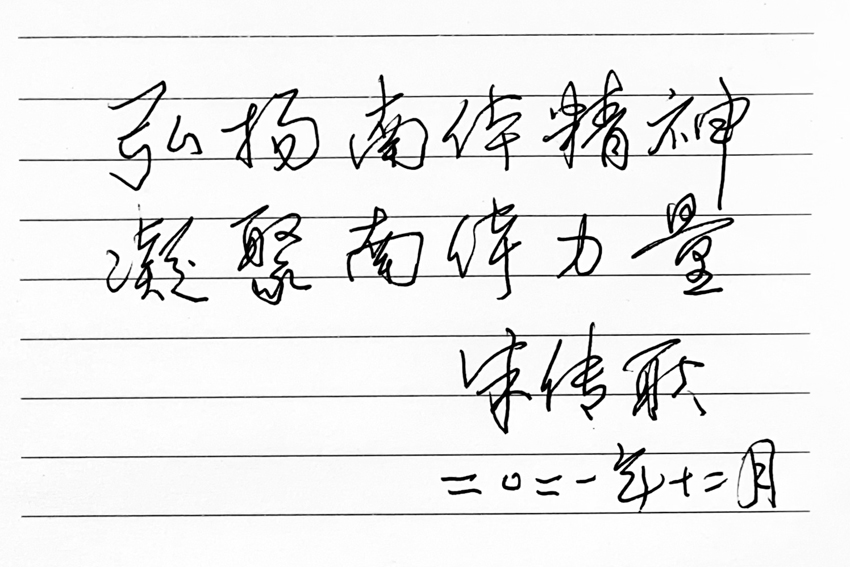 弘扬南体精神
凝聚南体力量
宋传联
二〇二一年十二月